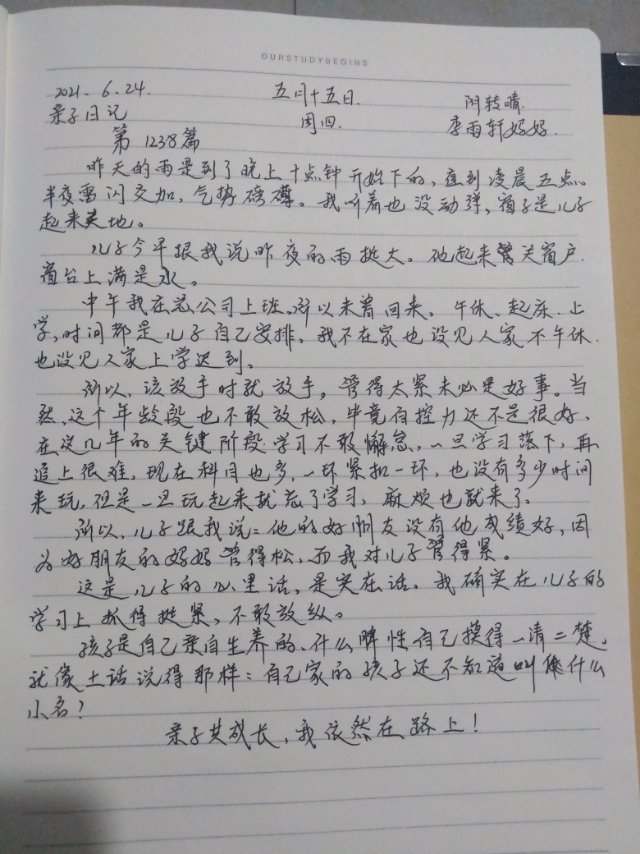 OURSTUDYBEGINS
2021.6.24. 五月十五日. 阴转晴.
亲子日记 周四. 李雨轩妈妈.
第1238篇
昨天的雨是到了晚上十点钟开始下的,直到凌晨五点。
半夜雷闪交加,气势磅礴。我听着也没动弹,窗子是儿子
起来关地。
儿子今早跟我说昨夜的雨挺大。他起来关窗户.
窗台上满是水。
中午我在总公司上班,所以未着回来。午休、起床、上
学,时间都是儿子自己安排。我不在家也没见人家不午休.
也没见人家上学迟到。
所以,该放手时就放手,管得太紧未必是好事。当
然、这个年龄段也不敢放松,毕竟自控力还不是很好、
在这几年的关键阶段学习不敢懈怠,一旦学习落下,再
追上很难,现在科目也多,一环紧扣一环,也没有多少时间
来玩,但是一旦玩起来就忘了学习,麻烦也就来了。
所以,儿子跟我说:他的好朋友没有他成绩好,因
为好朋友的妈妈管得松,而我对儿子管得紧。
这是儿子的心里话,是实在话。我确实在儿子的
学习上抓得挺紧,不敢放纵。
孩子是自己亲自生养的、什么脾性自己摸得一清二楚,
就像土话说得那样:自己家的孩子还不知道叫什么
小名?
亲子共成长,我依然在路上!